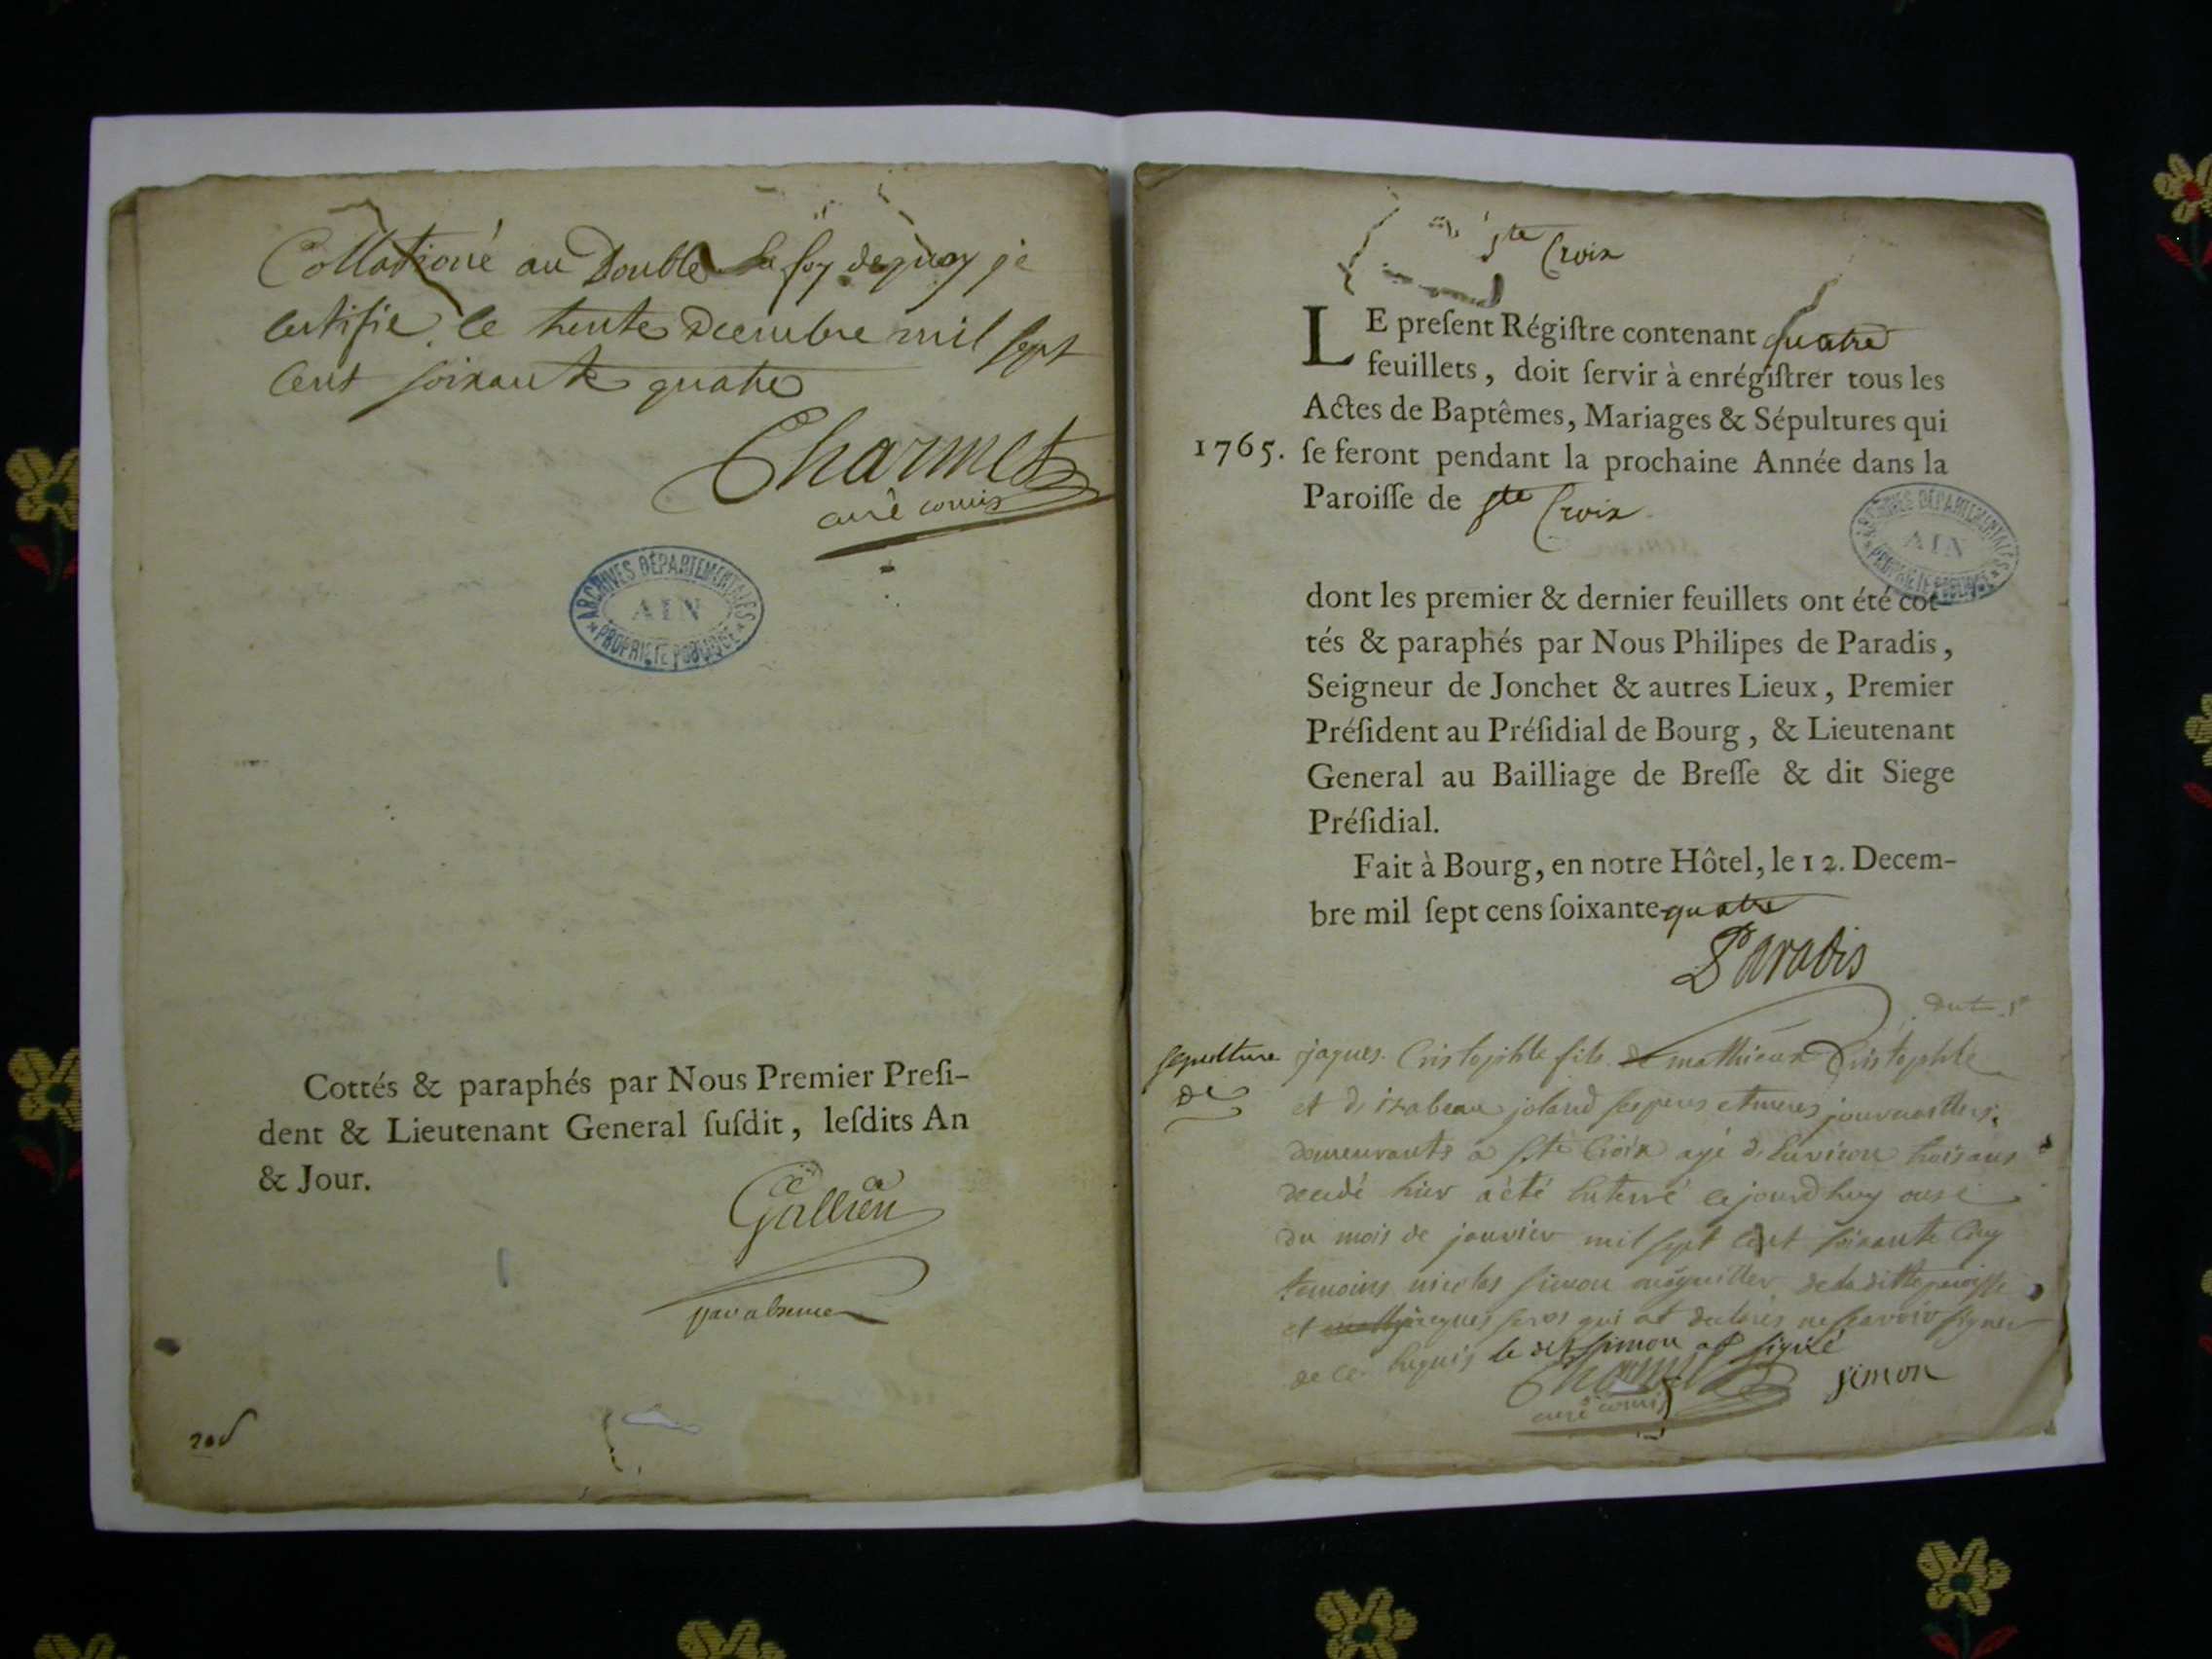 Collationé au Double La foy dequoy je
certifie, le trente Decembre mil sept
Cent soixante quatre
Charmet
curé comis
ARCHIVES DÉPARTEMENTALES
AIN
PROPRIÉTÉ PUBLIQUE
Cottés & paraphés par Nous Premier Presi-
dent & Lieutenant General susdit, lesdits An
& Jour.
Gallien
par absence
Ste Croix
LE present Régistre contenant quatre
feuillets, doit servir à enrégistrer tous les
Actes de Baptêmes, Mariages & Sépultures qui
1765. se feront pendant la prochaine Année dans la
Paroisse de Ste Croix
ARCHIVES DÉPARTEMENTALES
AIN
PROPRIÉTÉ PUBLIQUE
dont les premier & dernier feuillets ont été cot-
tés & paraphés par Nous Philipes de Paradis,
Seigneur de Jonchet & autres Lieux, Premier
Président au Présidial de Bourg, & Lieutenant
General au Bailliage de Bresse & dit Siege
Présidial.
Fait à Bourg, en notre Hôtel, le 12. Decem-
bre mil sept cens soixante quatre
Paradis
sepulture
de
jaques Cristophle fils de mathieux Cristophle
et d'izabeau joland ses peres et meres journalliers
demeurants a Ste Croix agé d'Environ trois ans
decedé hier a été Enterré cejourdhuy onze
du mois de janvier mil sept Cent soixante Cinq
temoins nicolas simon de la ditte paroisse
et jaques qui ont declarés ne scavoir signer
de ce Requis le dit simon at signé
Charmet
curé comis
simon